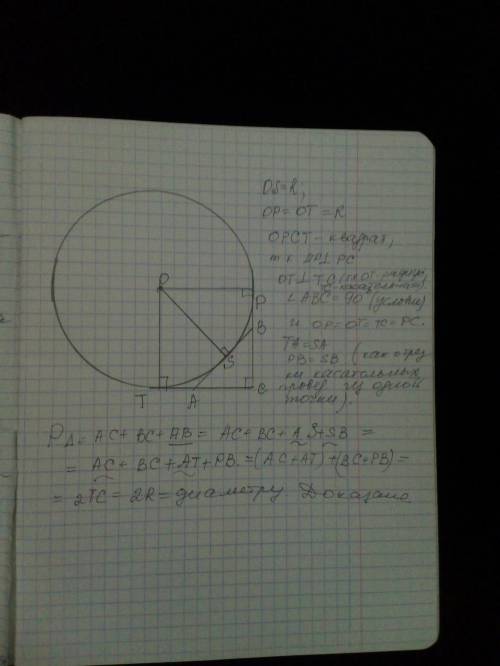 OS=R,
OP=OT=R
OPCT - квадрат,
т.к. OP⊥PC
OT⊥TC (т.к. OT-радиус,
TC-касательная)
∠ABC=90 (условие)
и OP=OT=TC=PC.
TA=SA
PB=SB (как отрез
ки касательных
провед. из одной
точки).
O
P
B
S
T
A
C
P△= AC+BC+AB= AC+BC+AS+SB=
= AC+BC+AT+PB=(AC+AT)+(BC+PB)=
=2TC=2R=диаметру Доказано